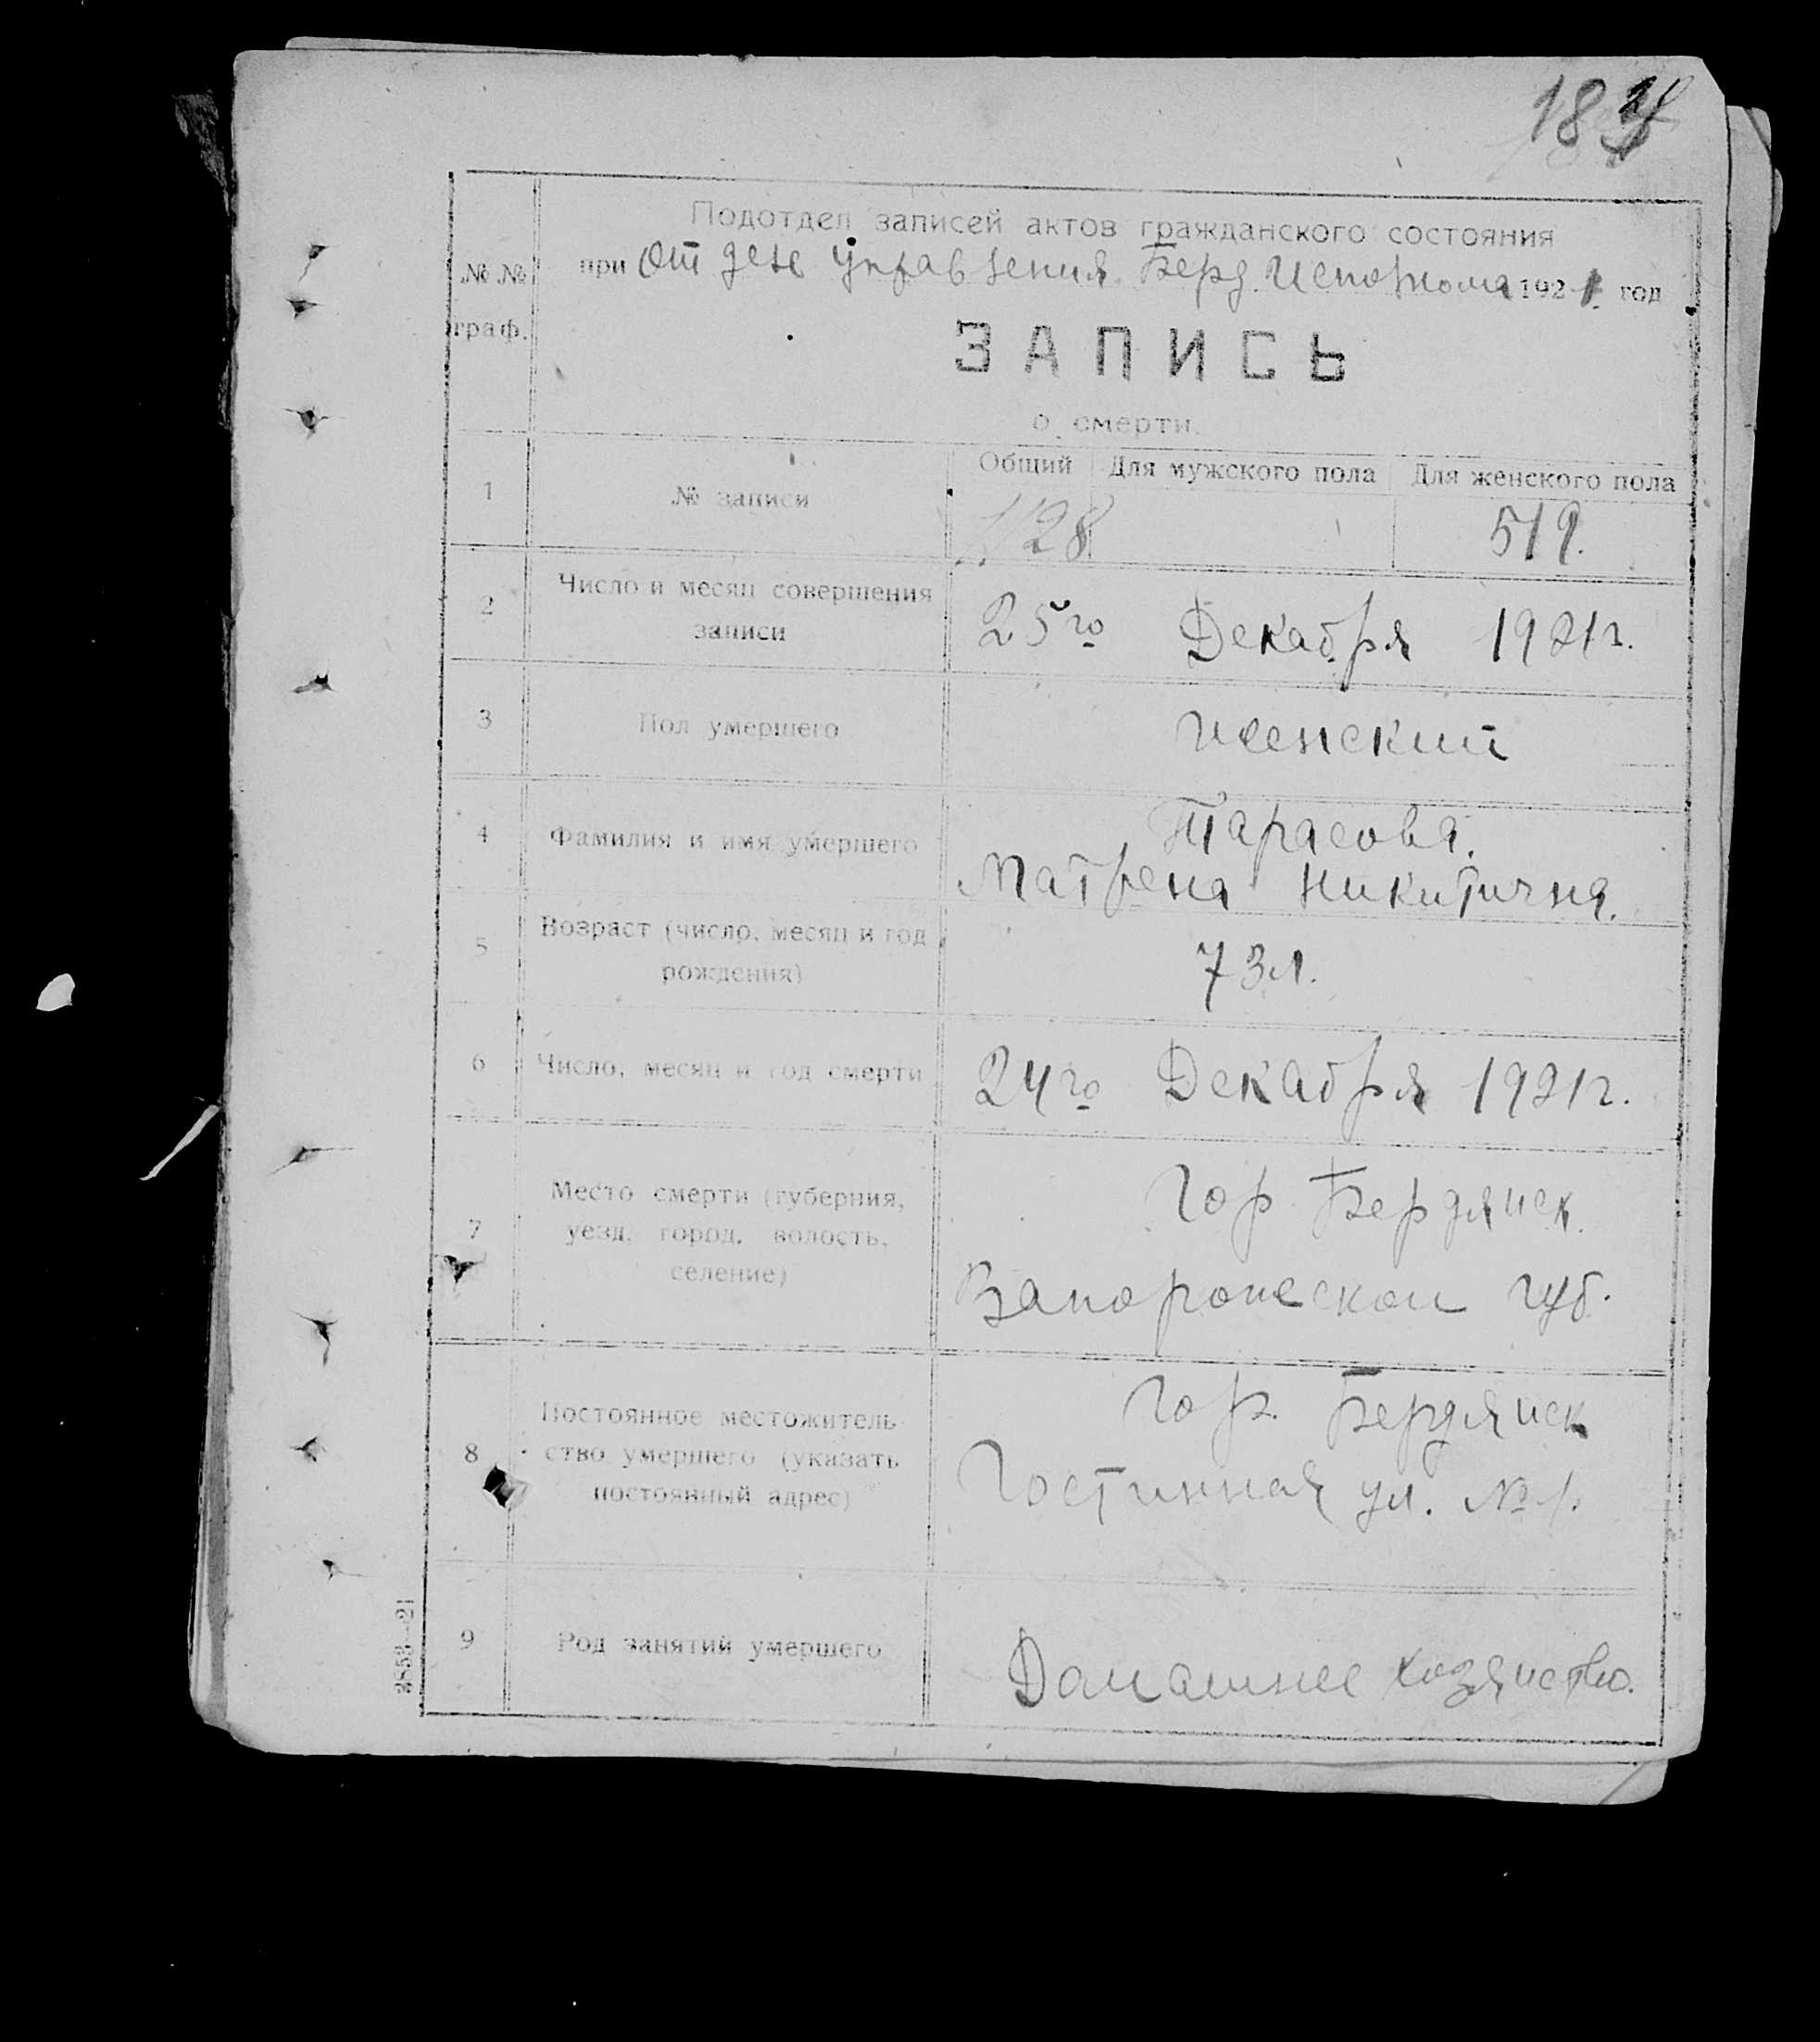 Подотдел записей актов гражданского состояния
№ №
граф.
при Отделе Управления Берд. Исполкома 1921 год
ЗАПИСЬ
о смерти.
1
№ записи
Общий
Для мужского пола
Для женского пола
1128
519.
2
Число и месяц совершения
записи
25го Декабря 1921г.
3
Пол умершего
Женский
4
Фамилия и имя умершего
Тарасова.
Матрена Никитична.
5
Возраст (число, месяц и год
рождения)
73 л.
6
Число, месяц и год смерти
24го Декабря 1921г.
7
Место смерти (губерния,
уезд, город, волость,
селение)
Гор. Бердянск.
Запорожской губ.
8
Постоянное местожитель-
ство умершего (указать
постоянный адрес)
Гор. Бердянск
Гостинная ул. № 1.
9
Род занятий умершего
Домашнее хозяйство.
3853—21